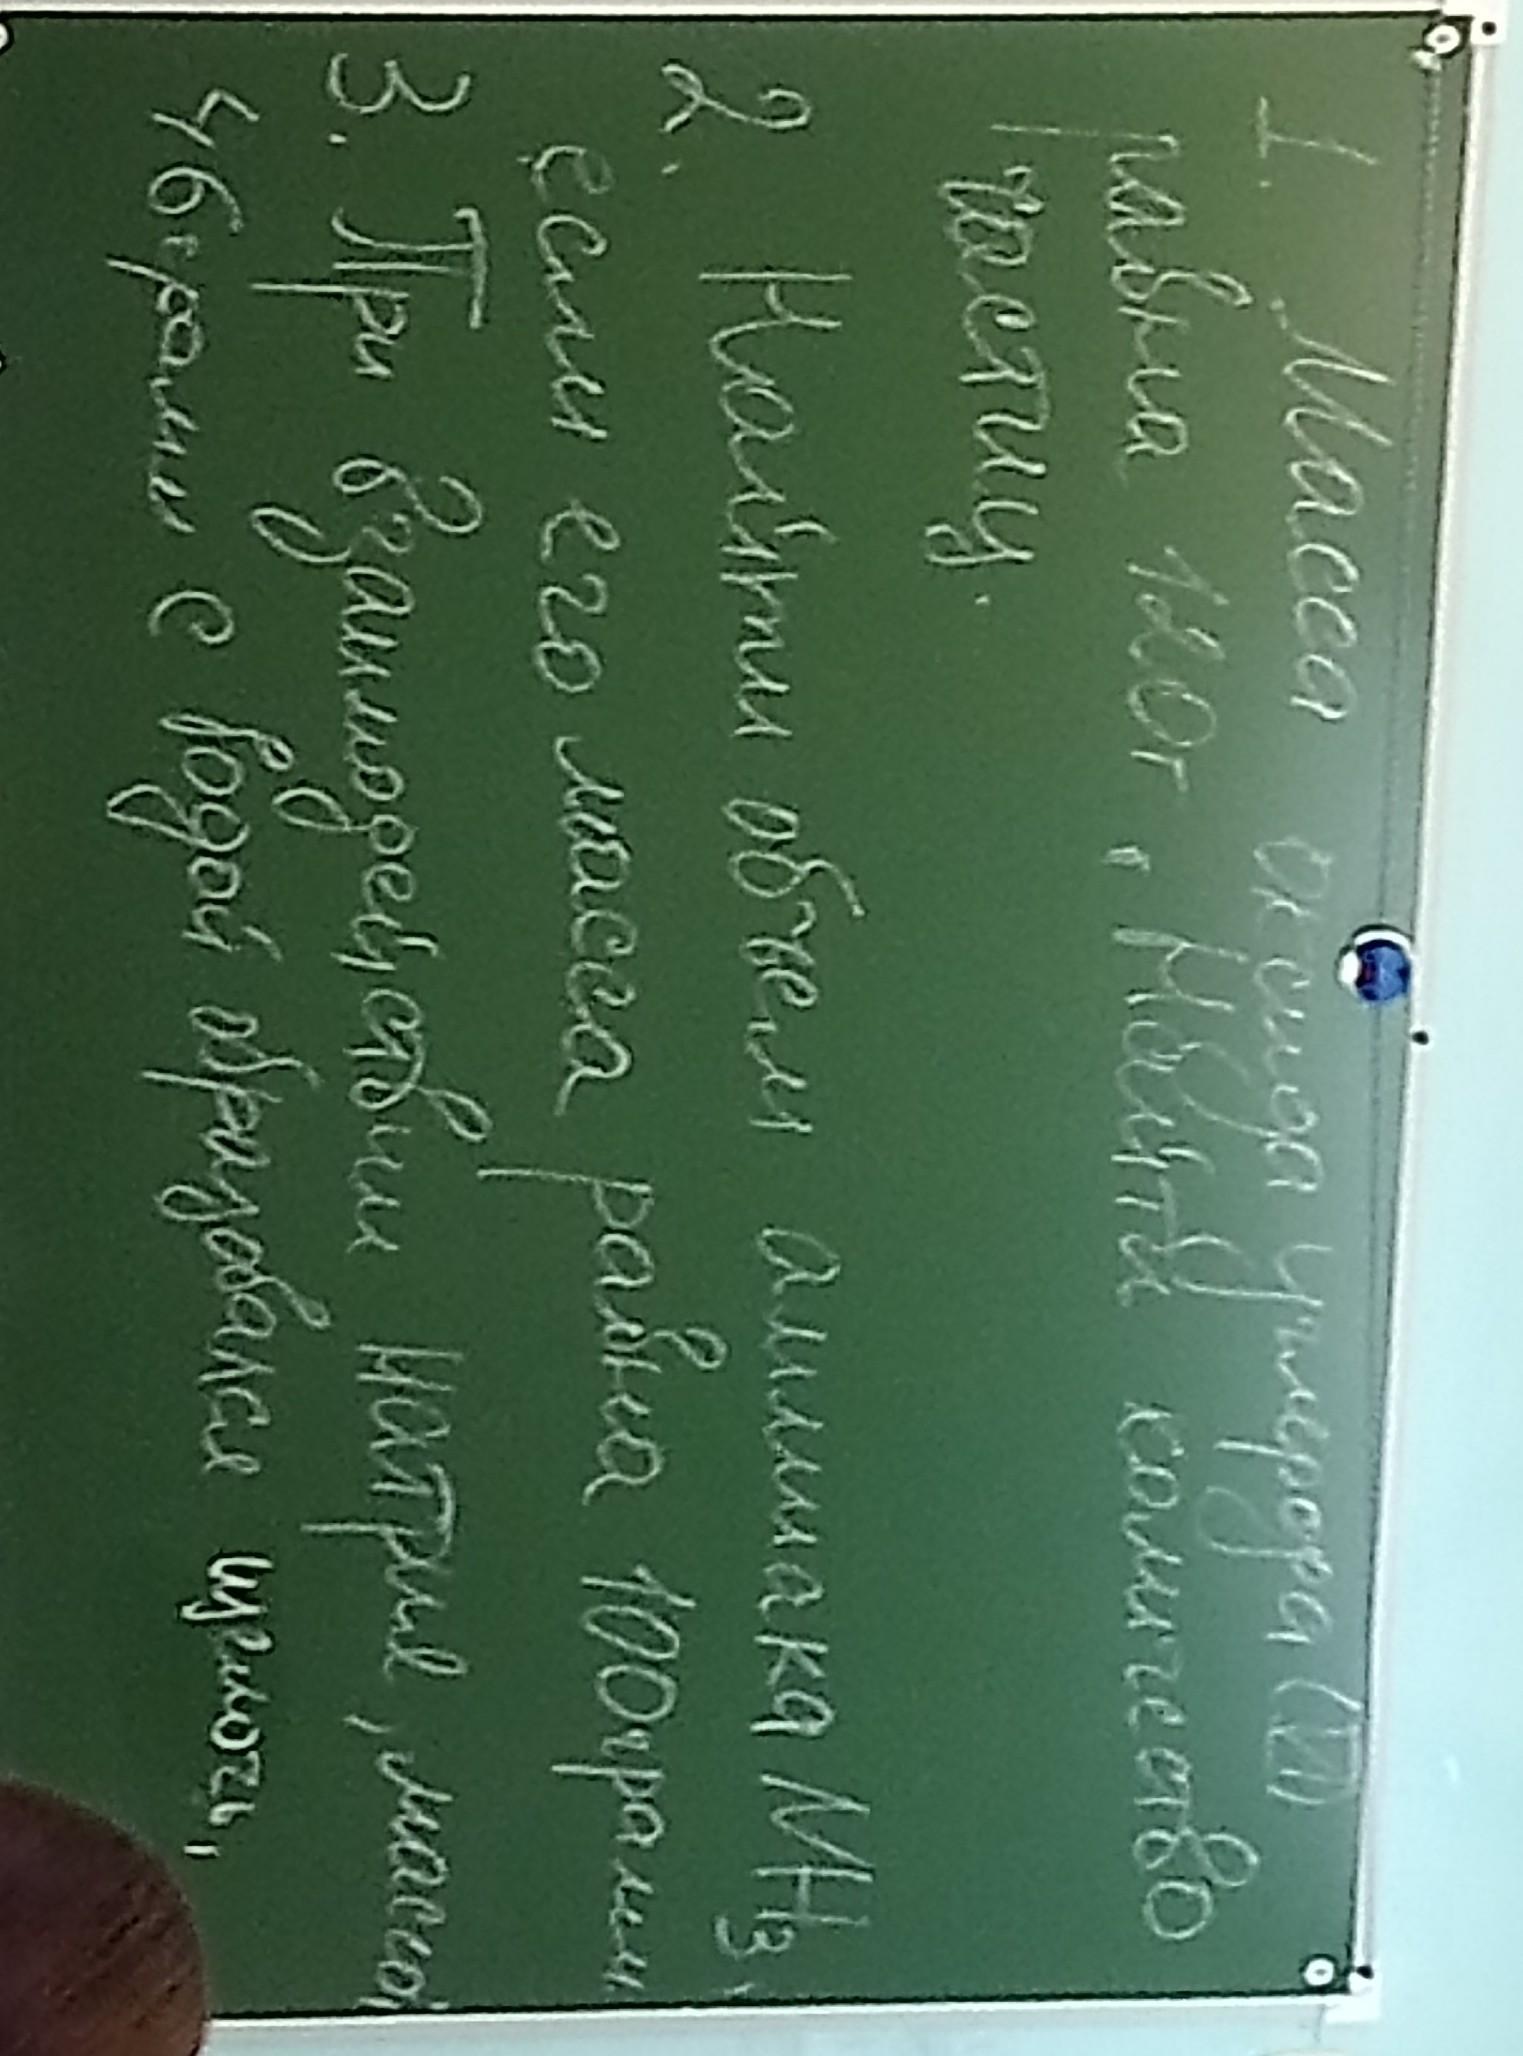 1. Масса оксида углерода (IV)
равна 180г. Найти количество
частиц.
2. Найти объем аммиака NH3,
если его масса равна 100грамм
3. При взаимодействии натрия, массой
46грамм с водой образовалсь щелочь,